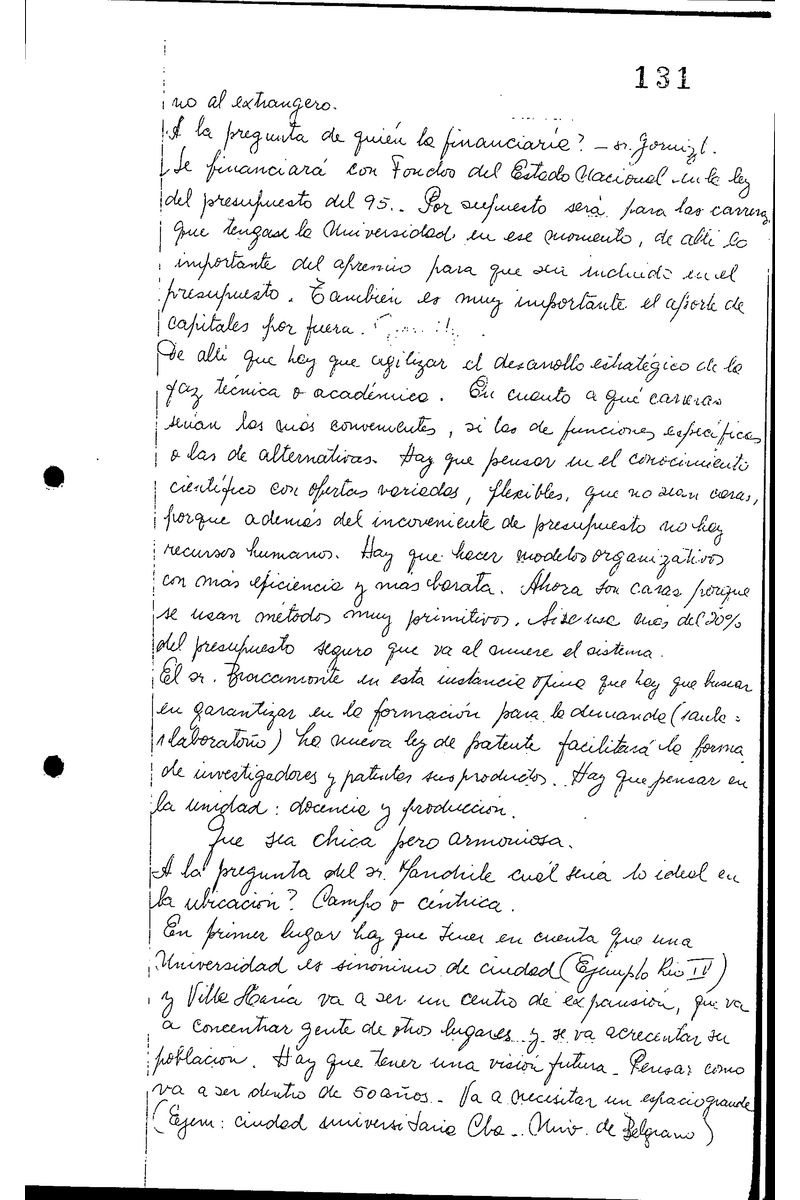 131
no al extrangero.
A la pregunta de quién la financiaría? – sr.
Se financiará con Fondos del Estado Nacional en la ley
del presupuesto del 95.. Por supuesto será para las carreras
que tengase la Universidad en ese momento, de alli lo
importante del apremio para que sea incluido en el
presupuesto. También es muy importante el aporte de
capitales por fuera.
De alli que hay que agilizar el desarrollo estratégico de la
faz técnica o académica. En cuanto a qué carreras
serian las más convenientes, si las de funciones específicas
o las de alternativas. Hay que pensar en el conocimiento
científico con ofertas variadas, flexibles, que no sean caras,
porque además del incoveniente de presupuesto no hay
recursos humanos. Hay que hacer modelos organizativos
con más eficiencia y más barata. Ahora son caras porque
se usan métodos muy primitivos. Si se usa más del 20%
del presupuesto seguro que va al muere el sistema.
El sr. Braccamonte en esta instancia opina que hay que buscar
en garantizar en la formación para la demanda (
laboratorio) La nueva ley de patente facilitará la forma
de investigadores y patentes sus productos. Hay que pensar en
la unidad: docencia y producción.
Que sea chica pero armoniosa.
A la pregunta del sr. Mandrile cuál sería lo ideal en
la ubicación? Campo o céntrica.
En primer lugar hay que tener en cuenta que una
Universidad es sinónimo de ciudad (Ejemplo Rio IV)
y Villa María va a ser un centro de expansión, que va
a concentrar gente de otros lugares y se va acrecentar su
población. Hay que tener una visión futura - Pensar como
va a ser dentro de 50 años - Va a necesitar un espacio grande
(Ejem: ciudad universitaria Cba - Univ. de Belgrano)